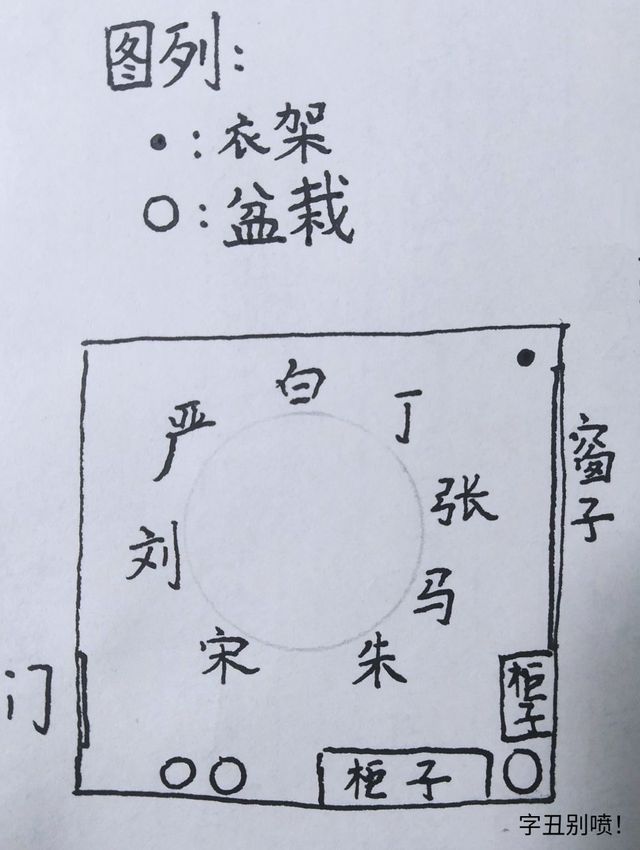 图列:
•:衣架
○:盆栽
白
严
丁
张
窗子
刘
马
宋
朱
门
柜子
柜子
字丑别喷!